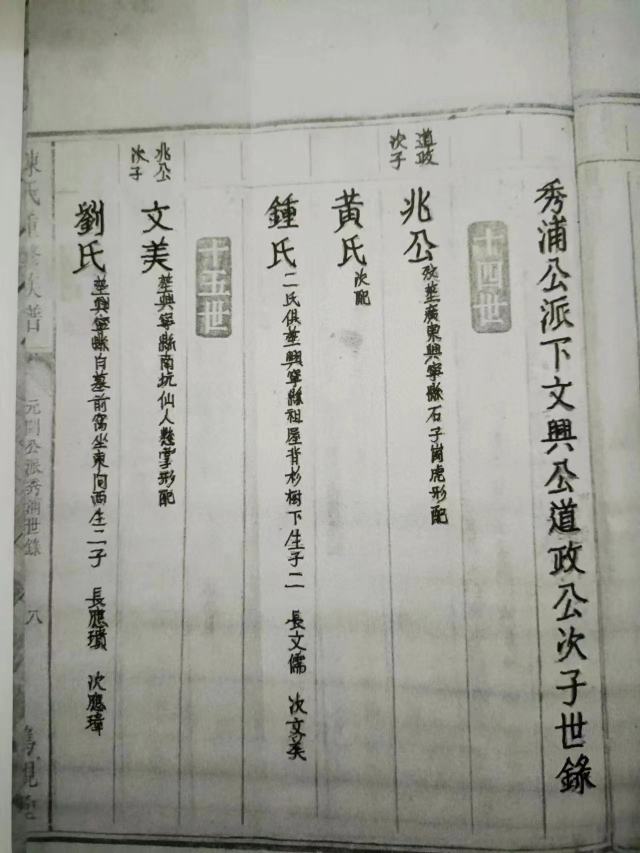 秀浦公派下文興公道政公次子世錄
十四世
道政
次子
兆公 歿塟廣東興寧縣石子崗虎形配
黃氏 次配
鍾氏 二氏俱塟興寧縣祖屋背杉樹下生子二 長文儒 次文美
十五世
兆公
次子
文美 塟興寧縣南坑仙人懸掌形配
劉氏 塟興寧縣白墓前窩坐東向西生二子 長應璸 次應璋
陳氏重修族譜
公派秀浦世錄
八